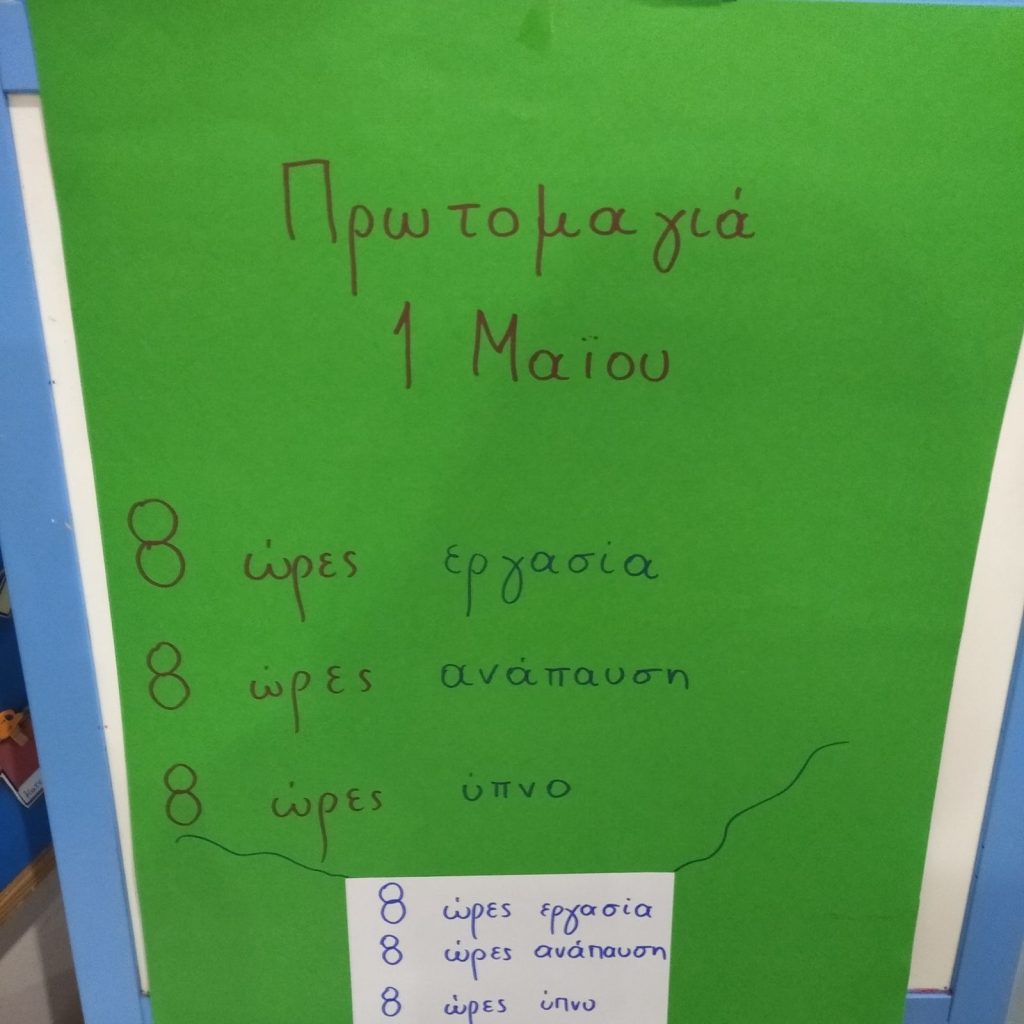 Πρωτομαγιά
1 Μαΐου
8 ώρες εργασία
8 ώρες ανάπαυση
8 ώρες ύπνο
8 ώρες εργασία
8 ώρες ανάπαυση
8 ώρες ύπνο